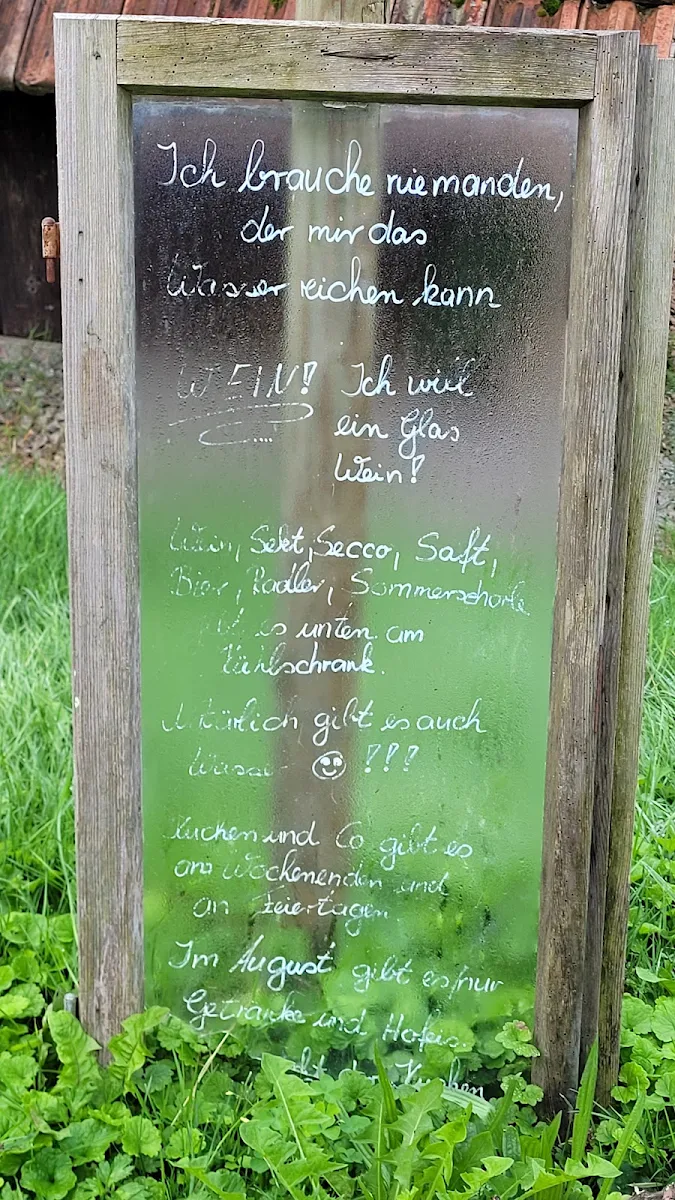 Ich brauche niemanden,
der mir das
Wasser reichen kann
WEIN! Ich will
ein Glas
Wein!
Wein, Sekt, Secco, Saft,
Bier, Radler, Sommerschorle
es unten am
Kühlschrank.
Natürlich gibt es auch
Wasser !!!
Kuchen und Co gibt es
am Wochenenden und
an Feiertagen
Im August gibt es nur
Getränke und Hofeis
Kuchen